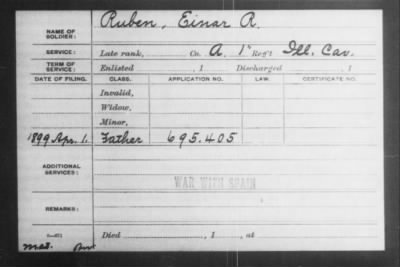 NAME OF SOLDIER: Ruben, Einar R.
SERVICE: Late rank, Co. A, 1" Reg't Ill. Cav.
TERM OF SERVICE: Enlisted , 1 Discharged , 1
DATE OF FILING. CLASS. APPLICATION NO. LAW. CERTIFICATE NO.
Invalid,
Widow,
Minor,
1899 Apr. 1. Father 695.405
ADDITIONAL SERVICES:
WAR WITH SPAIN
REMARKS:
Died , 1 , at